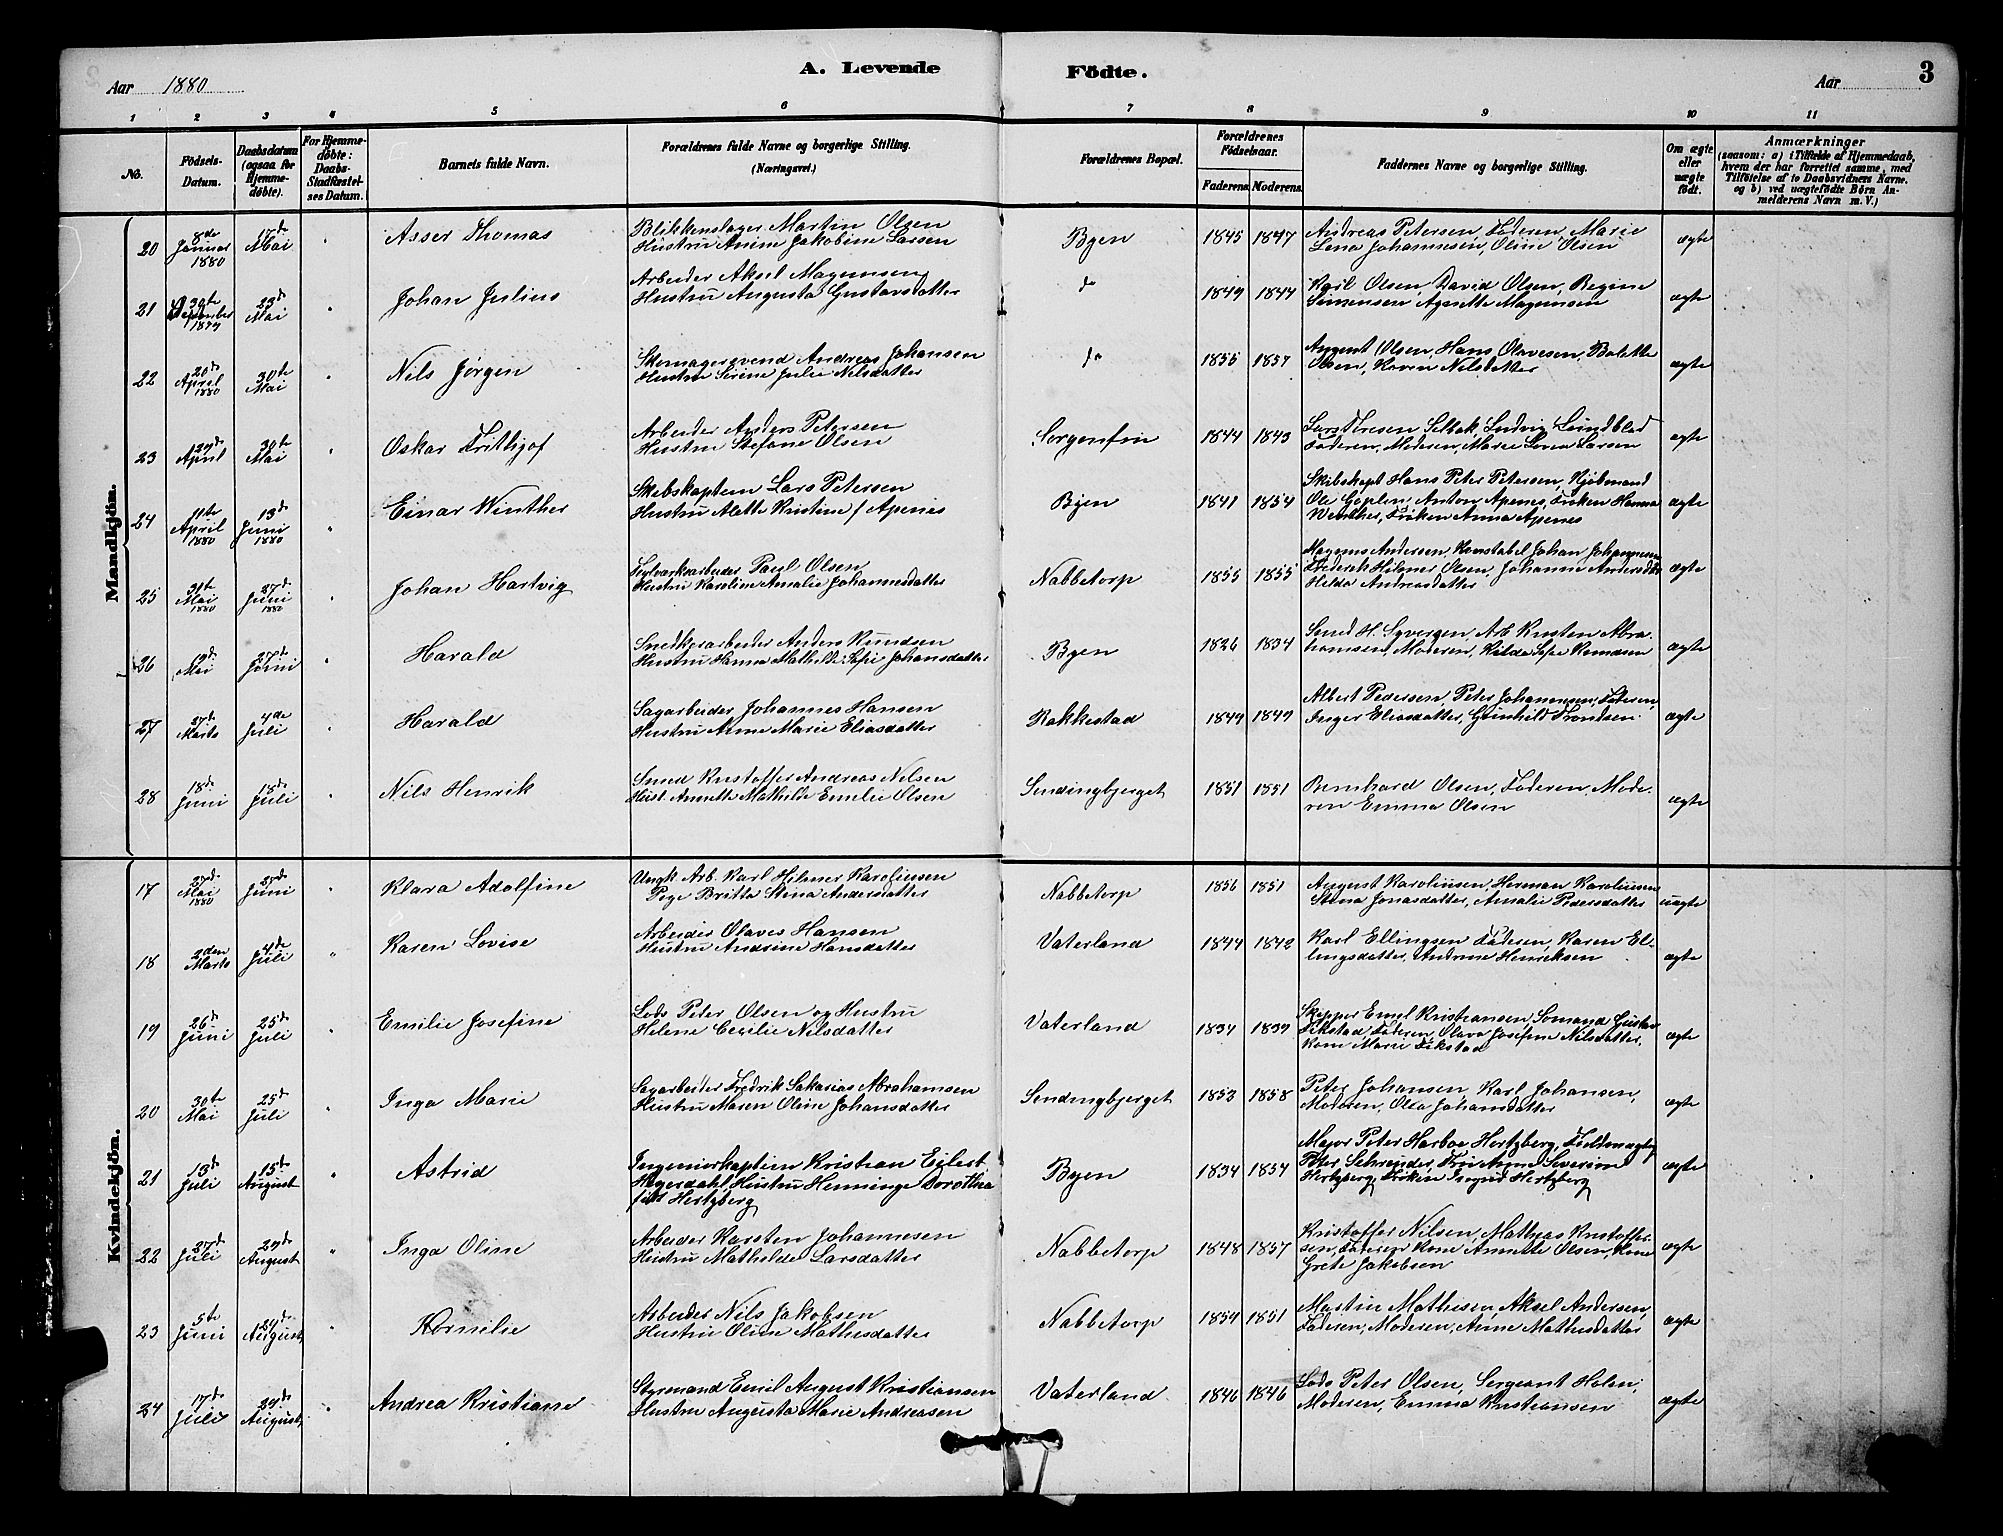 Aar 1880
A. Levende Födte.
Aar
3
1 2 3 4 5 6 7 8 9 10 11
No.
Födsels-Datum.
Daabsdatum (ogsaa for Hjemmedöbte).
For Hjemmedöbte: Daabs-Stadfæstelses Datum.
Barnets fulde Navn.
Forældrenes fulde Navne og borgerlige Stilling. (Næringsvei.)
Forældrenes Bopæl.
Forældrenes Födselsaar.
Faderens. Moderens.
Faddernes Navne og borgerlige Stilling.
Om ægte eller uægte födt.
Anmærkninger
(saasom: a) i Tilfælde af Hjemmedaab, hvem der har forrettet samme, med Tilföielse af to Daabsvidners Navne. og b) ved uægtefödte Börn Anmelderens Navn m. V.)
Mandkjön.
20 8de Januar 1880 17de Mai " Asser Thomas
Blikkenslager Martin Olsen
Hustru Anine Jakobine Larsen
Byen 1845 1847
Andreas Petersen, Faderen, Marie
Lena Johannesen, Oline Olsen
ægte
21 30te September 1879 23de Mai " Johan Julius
Arbeider Aksel Magnusen
Hustru Augusta Gustavsdatter
do 1849 1844
Karl Olsen, David Olsen, Regine
Simensen Agnette Magnusen
ægte
22 20de April 1880 30te Mai " Nils Jørgen
Skomagersvend Andreas Johansen
Hustru Serine Julie Nilsdatter
do 1855 1857
August Olsen, Hans Olavesen, Bolette
Olsen, Karen Nilsdatter
ægte
23 29de April 30te Mai " Oskar Frithjof
Arbeider Anders Petersen
Hustru Stefane Olsen
Sorgenfri 1844 1843
Lars Selbak, Ludvig Lundblad
Faderen, Moderen, Marie Larsen
ægte
24 11te April 1880 13de Juni 1880 " Einar Winther
Skibskaptein Lars Petersen
Hustru Alette Kristine f Apenes
Byen 1841 1854
Skibskapt Hans Peter Petersen, Kjøbmand
Ole Anton Apenes, Frøken Hanna
Winther, Frøken Anna Apenes
ægte
25 31te Mai 1880 27de Juni 1880 Johan Hartvig
Paul Olsen
Hustru Karoline Amalie Johannesdatter
Nabbetorp 1855 1855
Magnus Andersen, Konstabel Johan Johannesen
Fredrik Hilmer Olsen, Johanne Andersdtr
Hilda Andreasdatter
ægte
26 Mai 27de Juni " Harald
Snedkerarbeider Anders Knudsen
Hustru Hanna Mathilde Sofie Johansdatter
Byen 1826 1834
Smed H. Syversen, Arb Kristen Abra-
hamsen, Moderen, Hilda Sofie Knudsen
ægte
27 27de Marts 4de Juli " Harald
Sagarbeider Johannes Hansen
Hustru Anne Marie Eliasdatter
Rakkestad 1849 1849
Albert Pedersen, Peter Johannesen, Faderen,
Inger Eliasdatter, Gunhild Trondsen
ægte
28 18de Juni 18de Juli " Nils Henrik
Smed Kristoffer Andreas Nilsen
Hust. Annette Mathilde Emelie Olsen
Sendingbjerget 1851 1851
Bernhard Olsen, Faderen, Mode-
ren Emma Olsen
ægte
Kvindekjön.
17 27de Mai 1880 Juni " Klara Adolfine
Ungk. Arb. Karl Hilmer Karolinsen
Pige Britta Stina Andersdatter
Nabbetorp 1856 1851
August Karolinsen, Herman Karolinsen
Stina Jonasdatter, Amalie Pedersdatter
uægte
18 2den Marts 4de Juli " Karen Lovise
Arbeider Olaves Hansen
Hustru Andrine Hansdatter
Vaterland 1844 1842
Karl Ellingsen Faderen, Karen El-
lingsdatter, Andrine Henriksen
ægte
19 26de Juni 25de Juli " Emilie Josefine
Lods Peter Olsen og Hustru
Helene Cecilie Nilsdatter
Vaterland 1834 1839
Skipper Emil Kristiansen, Sømand Gustav
Fikstad Faderen, Olava Josefine Nilsdatter,
Kone Marie Fikstad
ægte
20 30te Mai 25de Juli " Inga Marie
Sagarbeider Fredrik Sakarias Abrahamsen
Hustru Maren Oline Johansdatter
Sendingbjerget 1853 1858
Peter Johansen, Karl Johansen,
Moderen, Olea Johansdatter
ægte
21 13de Juli 15de August " Astrid
Ingeniørkaptein Kristian Eilert
Hagerdahl, Hustru Henninge Dorothea
født Hertzberg
Byen 1834 1854
Major Peter Harboe Hertzberg, Fuldmægtig
Peter Schreuder, Fru Anne Severine
Hertzberg, Frøken Ingrid Hertzberg
ægte
22 27de Juli 29de August " Inga Oline
Arbeider Karsten Johannesen
Hustru Mathilde Larsdatter
Nabbetorp 1848 1857
Kristoffer Nilsen, Mathias Kristoffer-
sen, Faderen Kone Annette Olsen, Kone
Grete Jakobsen
ægte
23 5te Juni 29de August " Kornelie
Arbeider Nils Jakobsen
Hustru Oline Mathisdatter
Nabbetorp 1854 1851
Martin Mathisen, Aksel Andersen,
Faderen, Moderen, Anne Mathisdatter
ægte
24 17de Juli 29de August " Andrea Kristiane
Styrmand Emil August Kristiansen
Hustru Augusta Marie Andreasen
Vaterland 1846 1846
Lods Peter Olsen, Sergeant Holm,
Moderen, Emma Kristiansen
ægte